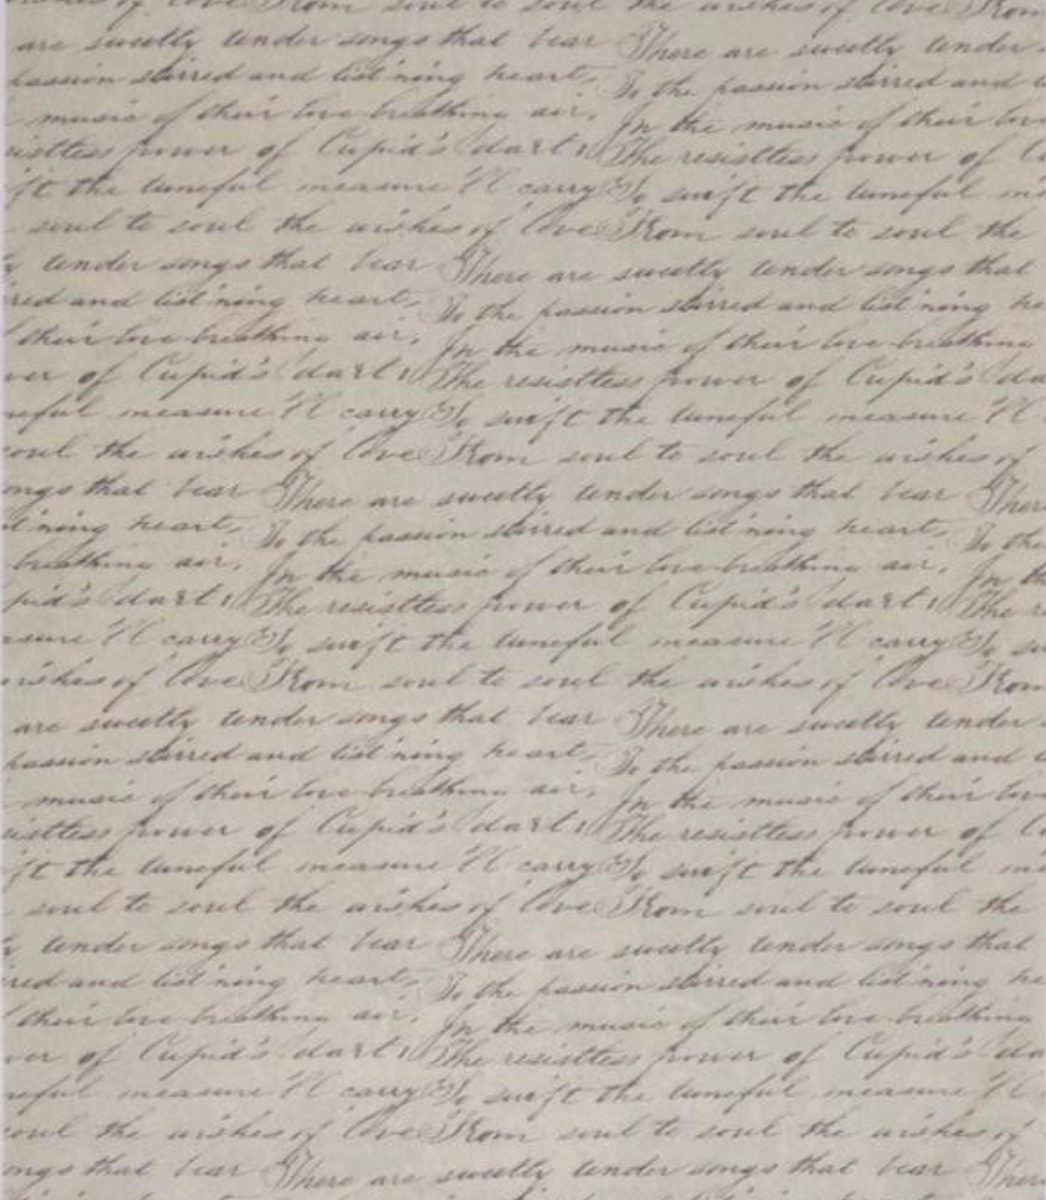 wishes of Love From soul to soul the wishes of Love From
are sweetly tender songs that bear There are sweetly tender
passion stirred and list'ning heart, To the passion stirred and
music of their love-breathing air, In the music of their love
sistless power of Cupid's dart! The resistless power of C
ift the tuneful measure 'll carry So swift the tuneful me
soul to soul the wishes of Love From soul to soul the
y tender songs that bear There are sweetly tender songs that
red and list'ning heart, To the passion stirred and list'ning he
their love-breathing air, In the music of their love-breathing
wer of Cupid's dart! The resistless power of Cupid's da
neful measure 'll carry So swift the tuneful measure 'll
soul the wishes of Love From soul to soul the wishes of
ongs that bear There are sweetly tender songs that bear There
st'ning heart, To the passion stirred and list'ning heart, To the
breathing air, In the music of their love-breathing air, In th
pid's dart! The resistless power of Cupid's dart! The r
asure 'll carry So swift the tuneful measure 'll carry So sw
wishes of Love From soul to soul the wishes of Love From
are sweetly tender songs that bear There are sweetly tender
passion stirred and list'ning heart, To the passion stirred and
music of their love-breathing air, In the music of their love
sistless power of Cupid's dart! The resistless power of C
ift the tuneful measure 'll carry So swift the tuneful me
soul to soul the wishes of Love From soul to soul the
y tender songs that bear There are sweetly tender songs that
red and list'ning heart, To the passion stirred and list'ning he
their love-breathing air, In the music of their love-breathing
wer of Cupid's dart! The resistless power of Cupid's da
neful measure 'll carry So swift the tuneful measure 'll
soul the wishes of Love From soul to soul the wishes of
ongs that bear There are sweetly tender songs that bear There